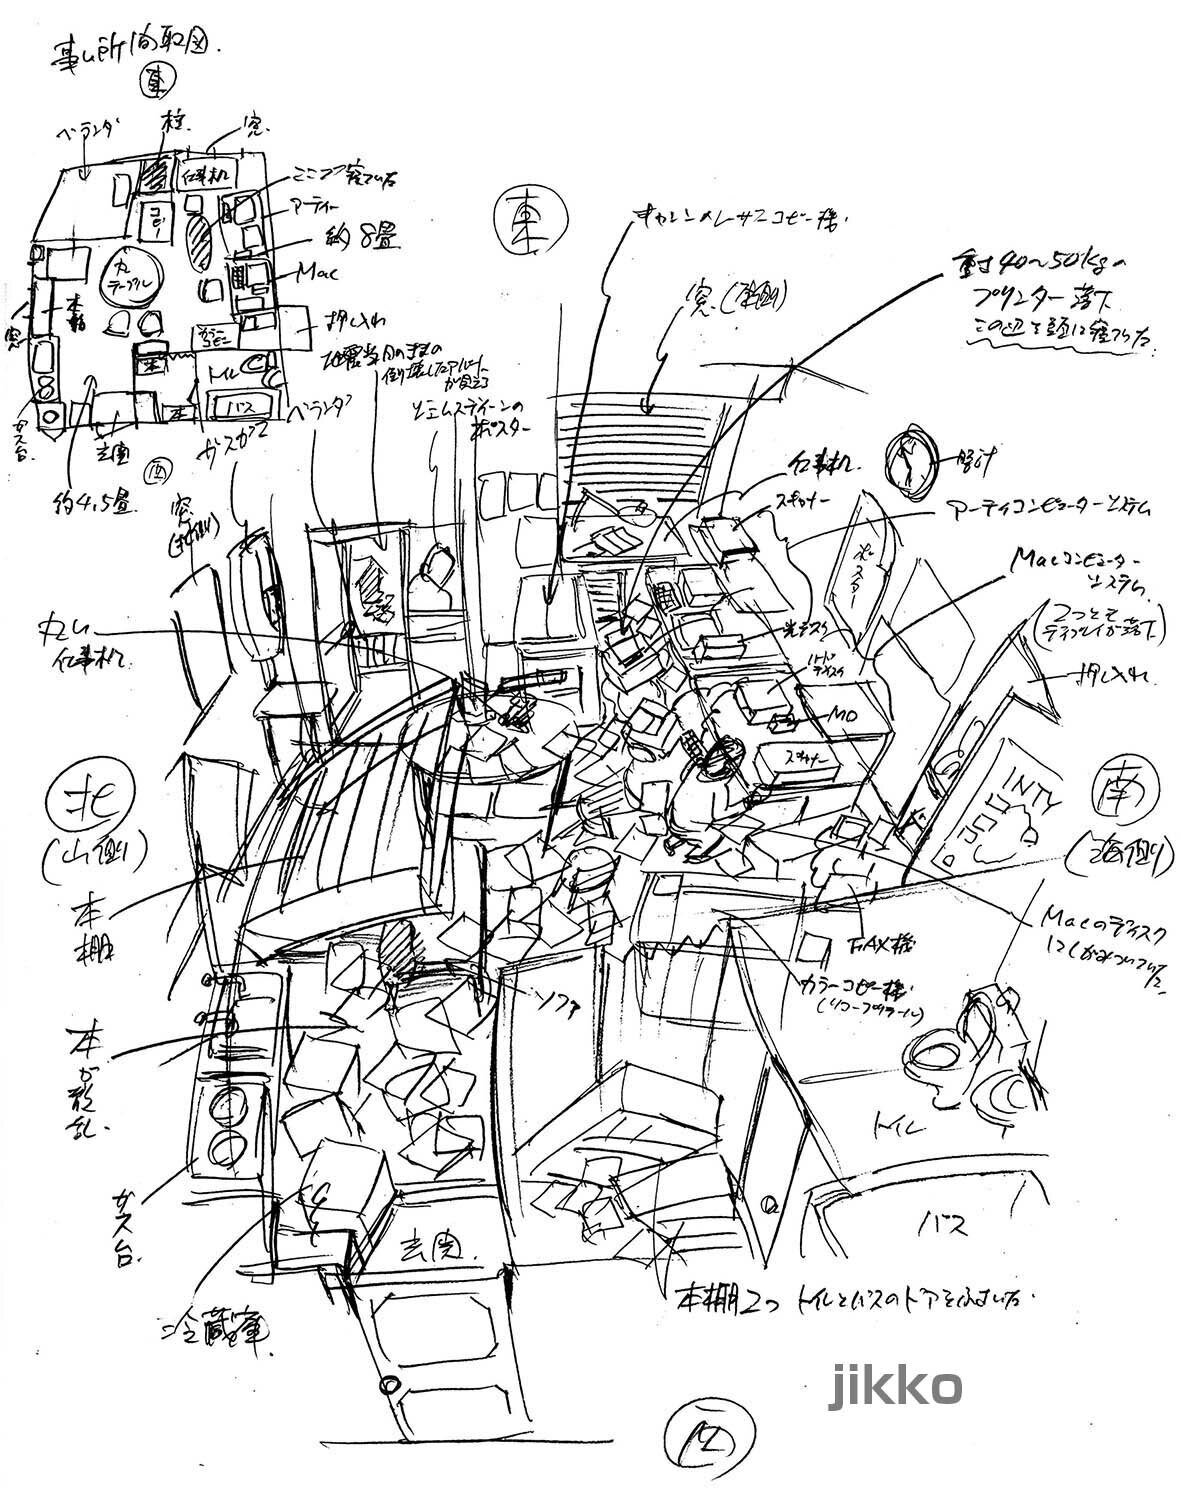 事ム所間取図.
東
ベランダ
柱.
窓.
仕事机
ここで寝ている
アーティー
約8畳
Mac
コピー
丸
テーブル
本棚
窓
押し入れ
カラー
コピー
トイレ
バス
本
本
ガス台.
玄関
西
約4,5畳.
地震当日のままの
倒壊したアパート
が見える
ベランダ
ジェームスディーンの
ポスター
窓
(北側)
東
キャノンのレーザーコピー機.
窓.(東側)
重さ40〜50kgの
プリンター落下
この辺を頭に寝ていた.
仕事机.
スキャナー
時計
アーティコンピューターシステム
Macコンピューター
システム.
(2つとも
ディスプレイが落下)
ポスター
押し入れ.
光ディスク
ハード
ディスク
MO
スキャナー
丸い
仕事机.
北
(山側)
南
(海側)
INTV
本棚
Macのディスク
にしがみついていた.
FAX機
カラーコピー機.
ソファ
本が散乱.
トイレ
バス
ガス台.
玄関.
冷蔵庫.
本棚2つ トイレとバスのドアをふさいだ.
jikko
西